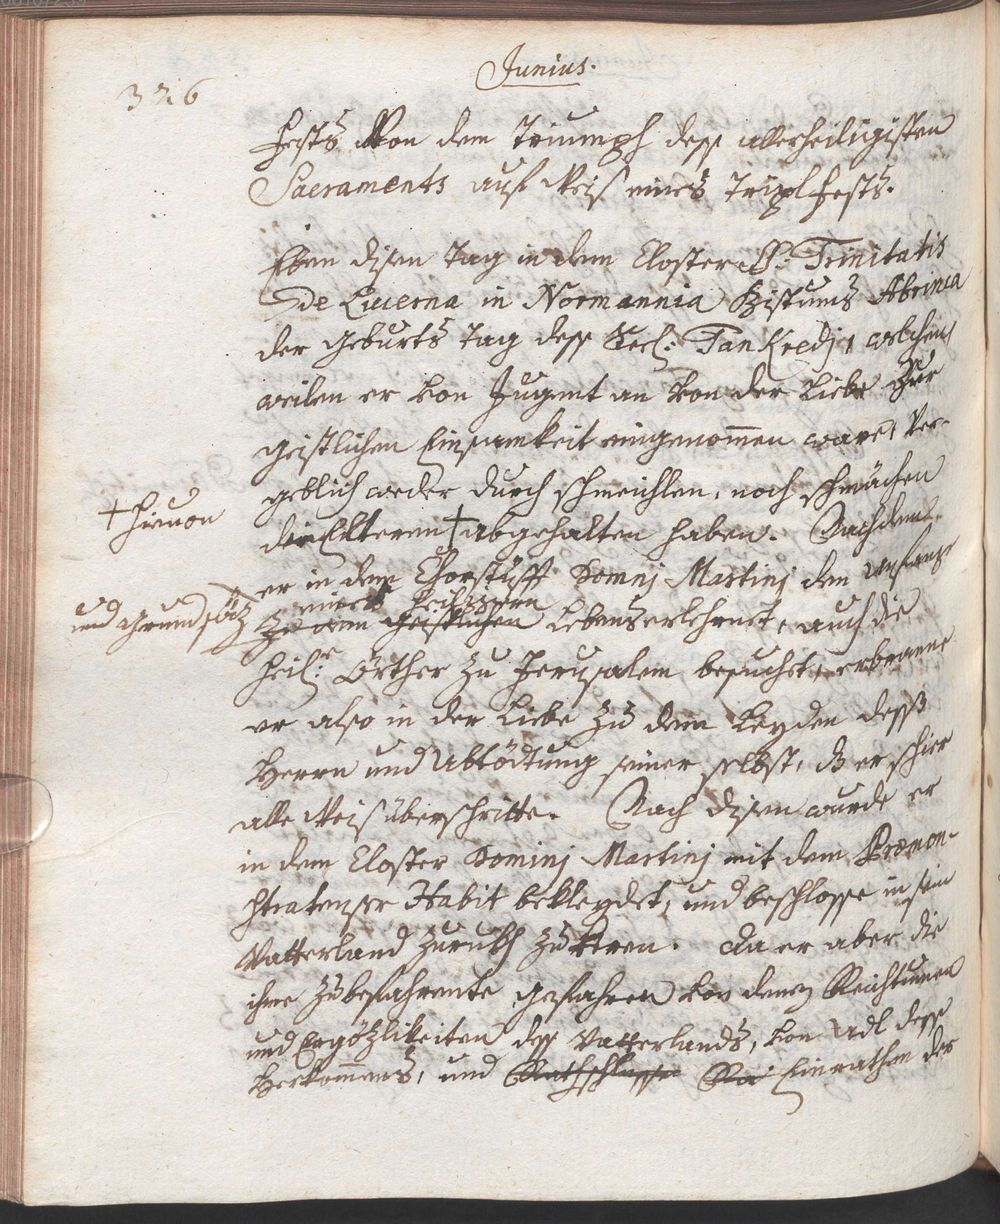 Junius.
326
Fests Von dem Triumph dess allerheiligisten
Sacraments auf Weis eines Tripl Fests.
Eben disen Tag in dem Closter SS. Trinitatis
De Lucerna in Normannia Bistums Abrinca
der Geburts Tag dess Seel: Tankredj, welchen
weilen er von Jugent an von der Liebe zur
geistlichen Einsamkeit eingenommen ware, ver-
geblich weder durch schmeichlen, noch schmächen
die Elteren † abgehalten haben. Nachdem
† hieuon
er in dem Chorstüfft Domnj Martinj den Anfang
eines heil:
und Grundsätz
zu dem Geistlichen Lebens erlehrnet, auch die
heil:e Orther zu Jerusalem besuchet, erbranne
er also in der Liebe zu dem Leyden dess
Herrn und Abtödtung seiner selbst, dz er schier
alle Weis überschritte. Nach disen wurde er
in dem Closter Dominj Martinj mit dem Præmon-
stratenser Habit bekleydet, und beschlosse in sein
Vatterland zurukh zu kehren. da er aber die
ihme zu befahrente gefahren von denen Reichtumen
und Ergötzlikeiten dess Vatterlands, von Adl dess
Herkommens, und Rathschlussen Einrathen der